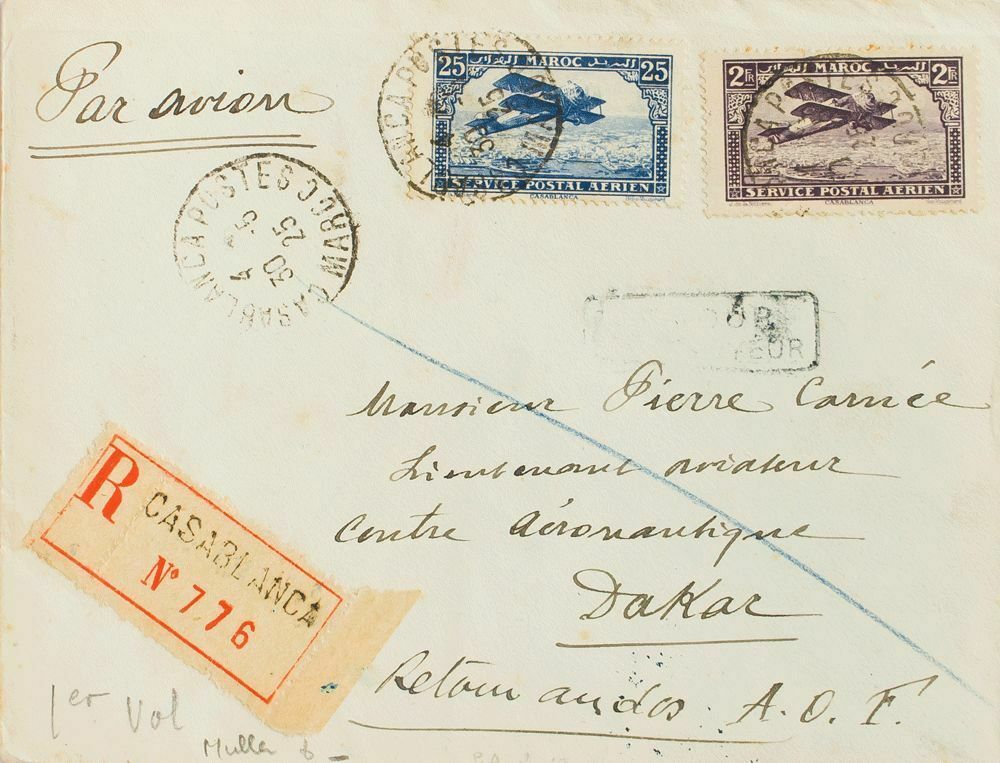 Par avion
25 MAROC البريد الهوائي 25
SERVICE POSTAL AÉRIEN
CASABLANCA
2FR MAROC 2FR
SERVICE POSTAL AÉRIEN
CASABLANCA
CASABLANCA POSTES MAROC
4 30
5 25
Monsieur Pierre Carnée
Lieutenant aviateur
Centre Aéronautique
Dakar
Retour au dos A.O.F.
R CASABLANCA
N° 776
1er Vol
Muller 6